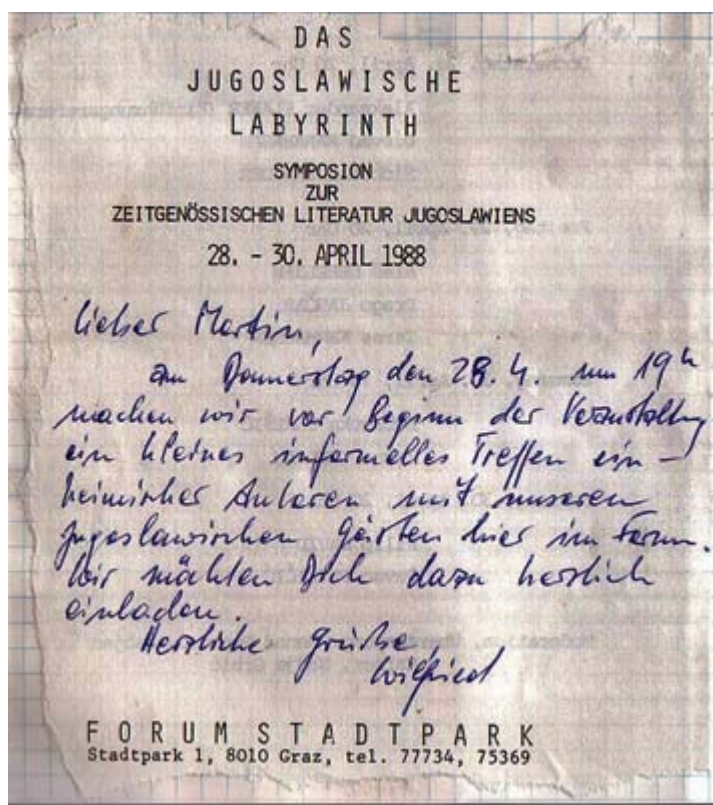 DAS
JUGOSLAWISCHE
LABYRINTH
SYMPOSION
ZUR
ZEITGENÖSSISCHEN LITERATUR JUGOSLAWIENS
28. - 30. APRIL 1988
lieber Martin,
am Donnerstag den 28. 4. um 19h
machen wir vor Beginn der Veranstaltung
ein kleines informelles Treffen ein-
heimischer Autoren mit unseren
jugoslawischen Gästen hier im Forum.
Wir möchten Dich dazu herzlich
einladen.
Herzliche Grüße,
Wilfried
FORUM STADTPARK
Stadtpark 1, 8010 Graz, tel. 77734, 75369